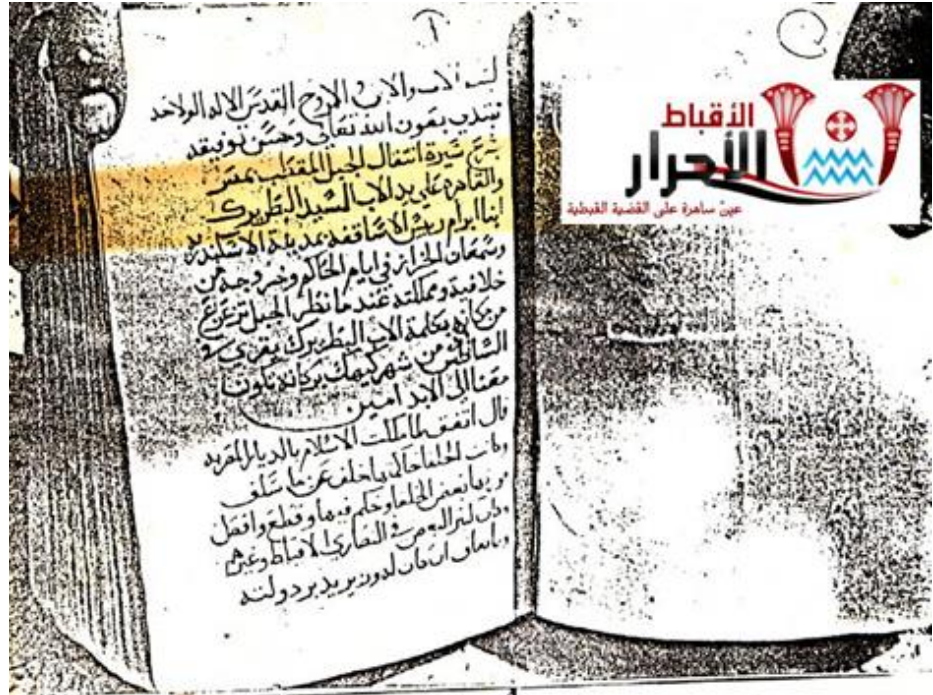 بسم الاب والابن والروح القدس الاله الواحد
نبتدي بعون الله تعالي وحسن توفيقه
بشرح سيرة انتقال الجبل المقطب بمصر
والقاهره علي يد الاب السيد البطريرك
انبا ابرام ريس الاساقفه بمدينة الاسكندريه
وسمعان الخراز في ايام الحاكم وخروجه من
خلافية ومملكته عند ما نظر الجبل تزعزع
من مكانه بكلمة الاب البطريرك يقري في
السادس من شهر كيهك بركاته تكون
معنا الي الابد امين
قال اتفق لما ملكت الاسلام بالديار المصريه
وكانت الخلفا حالها خلف عن ما سلف
من بعض الخلفا وحكم فيها وقطع وافصل
في النصاري الاقباط وغيرهم
وزير يدبر دولته
الأقباط
الأحرار
عين ساهرة على القضية القبطية